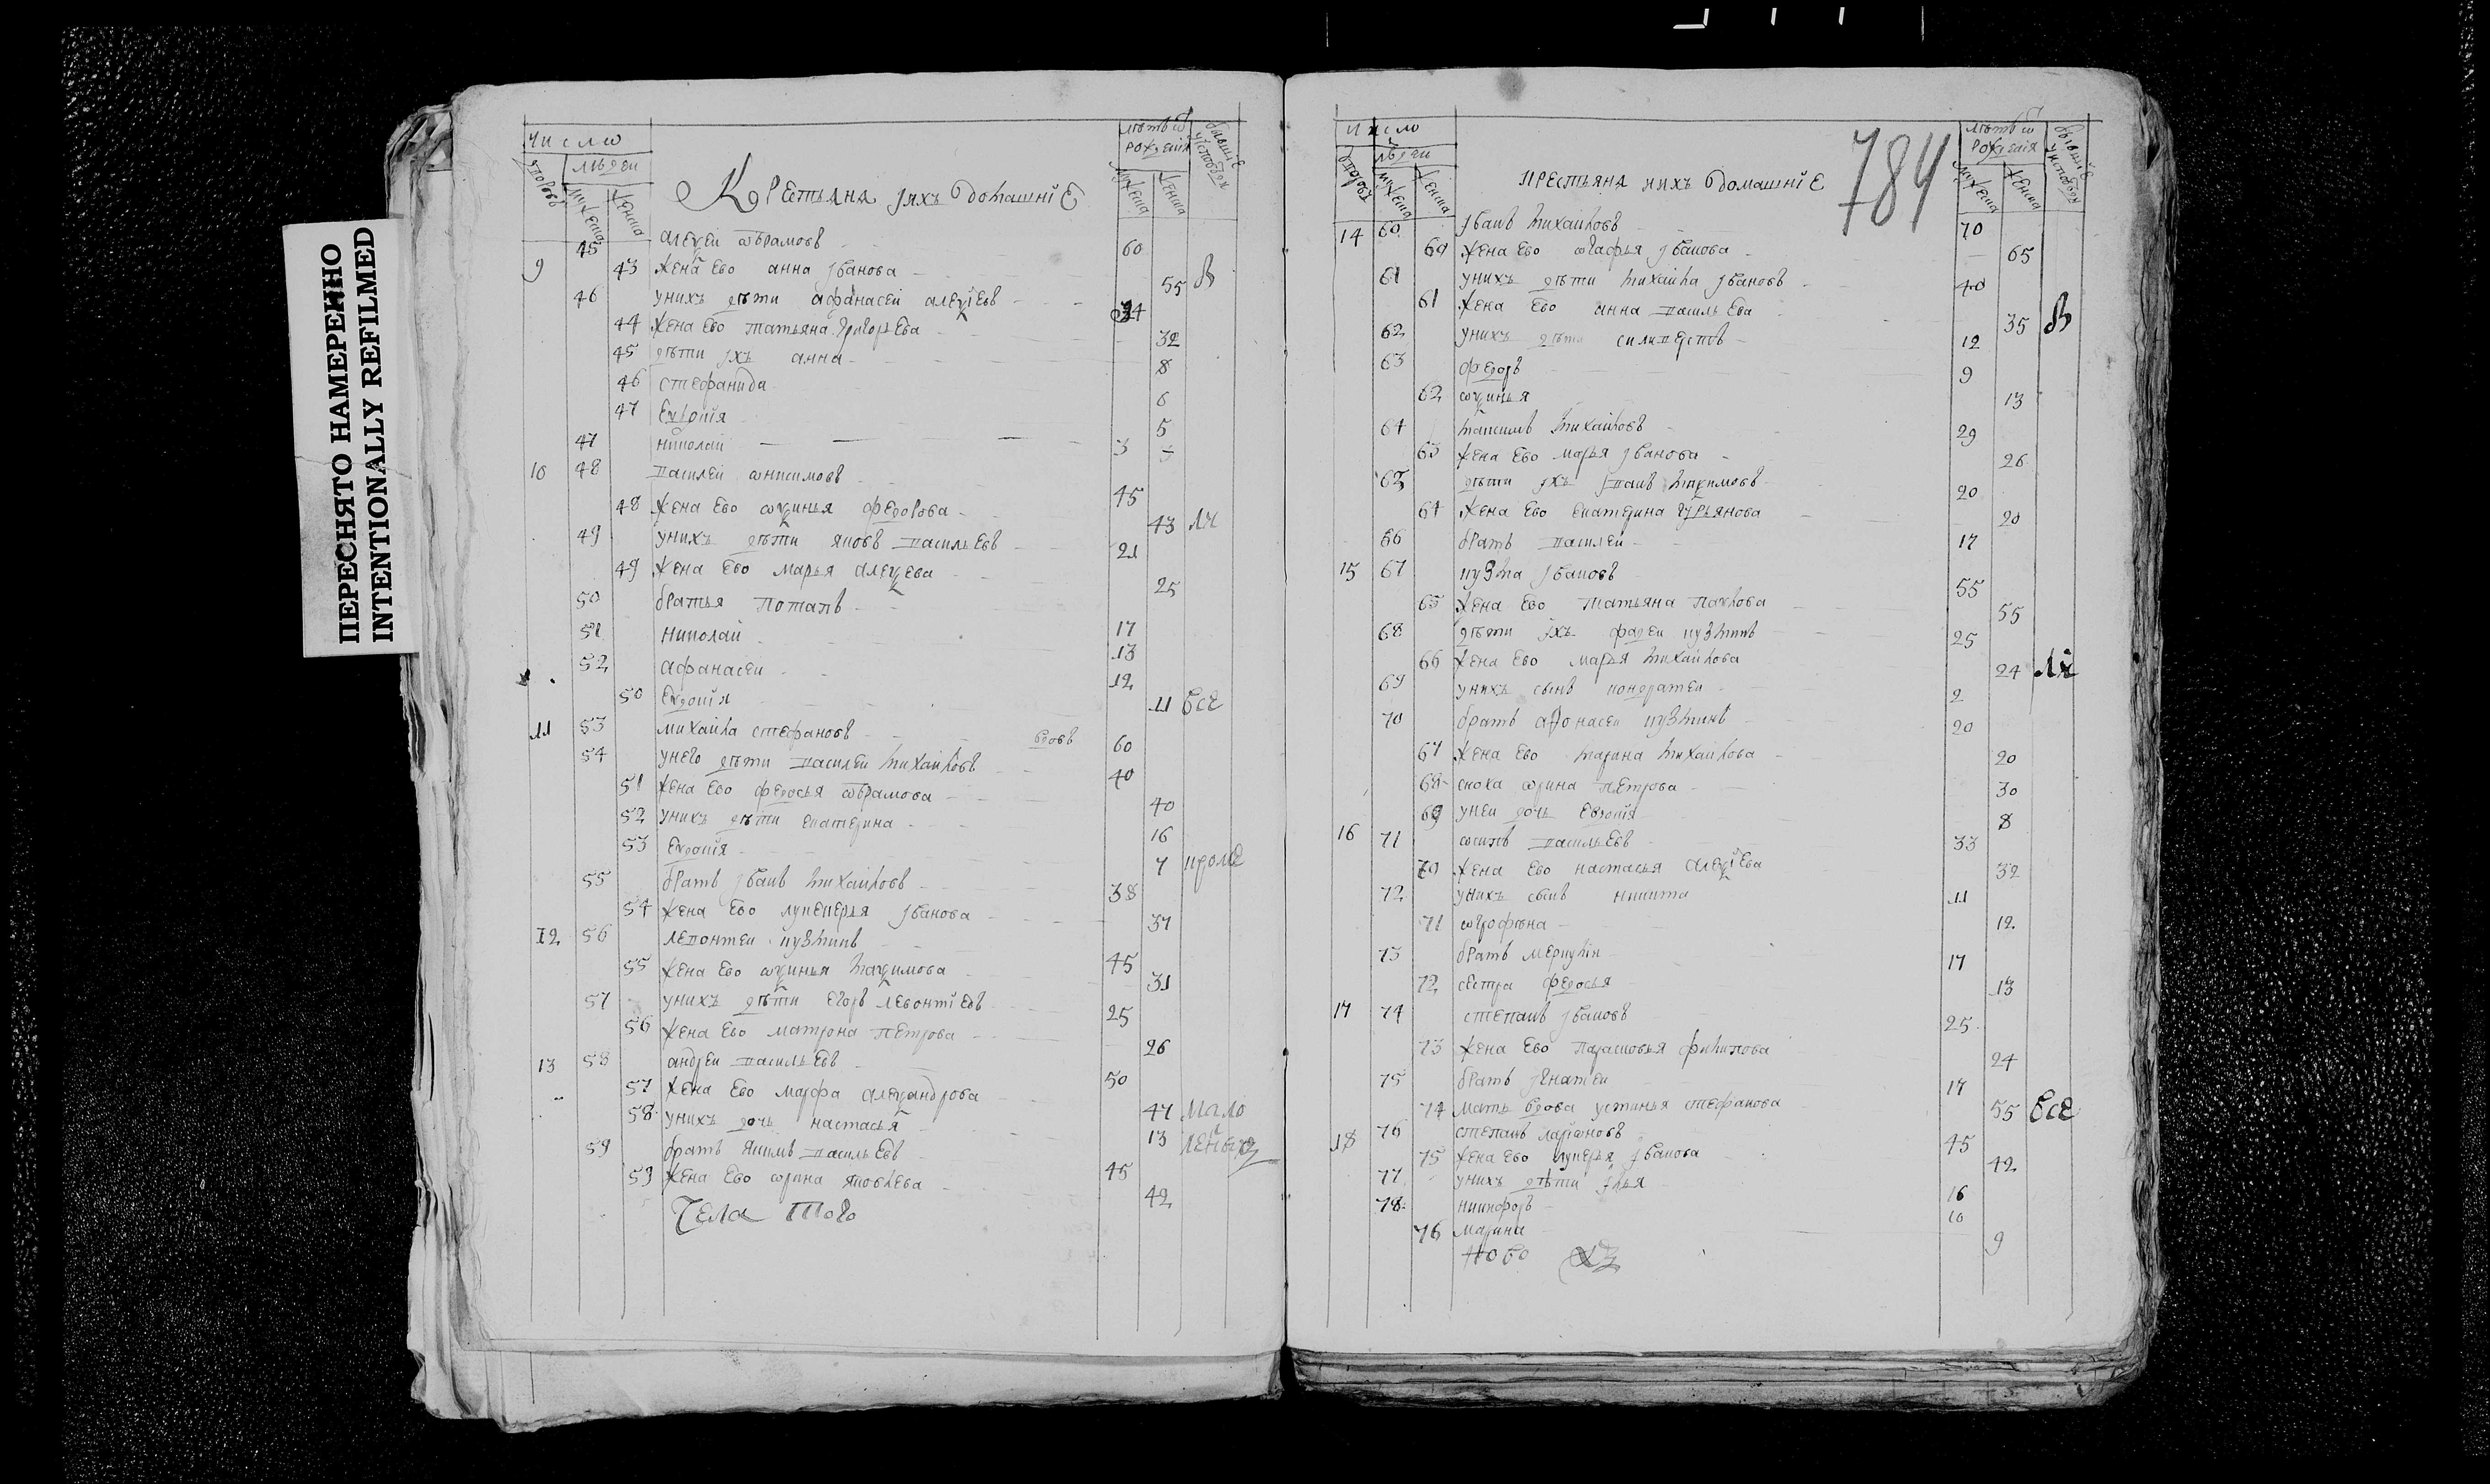 ПЕРЕСНЯТО НАМЕРЕННО
INTENTIONALLY REFILMED
число
людей
лѣтъ ѿ рожденія
Крестьяня ихъ домашніе
45 алеѯей абрамовъ 60
9 43 жена ево анна іванова 55
46 унихъ дѣти афанасей алеѯіевъ 34
44 жена ево татьяна григорьева 32
45 дѣти ихъ анна 8
46 стефанида 6
47 Евдокія 5
47 николай 3
10 48 василей ѡнисимовъ 45
48 жена ево ѡѯинья федорова 43
49 унихъ дѣти яковъ васильевъ 21
49 жена ево марья алеѯева 25
50 братья потапъ 17
51 николай 13
52 афанасеи 12
50 Евдокія 11 все
11 53 михаила стефановъ вдовъ 60
54 унего дѣти василеи михаиловъ 40
51 жена ево федосья абрамова 40
52 унихъ дѣти екатерина 16
53 Евдокія 7 кроме
55 братъ іванъ михаиловъ 38
54 жена ево лукерья іванова 37
12 56 левонтеи кузминъ 45
55 жена ево ѡѯинья маѯимова 31
57 унихъ дѣти егоръ левонтіевъ 25
56 жена ево матрона петрова 26
13 58 андреи васильевъ 50
57 жена ево марфа алеѯандрова 47 мало
58 унихъ дочь настасья 13
59 братъ якимъ васильевъ 45
59 жена ево ѡрина яковлева 42
села того
784
число
людеи
лѣтъ ѿ рожденія
крестьяня иихъ домашніе
14 60 іванъ михаиловъ 70
60 жена ево агафья іванова 65
61 унихъ дѣти михаила івановъ 40
61 жена ево анна васильева 35
62 унихъ дѣти силивестръ 12
63 федоръ 9
62 ѡѯинья 13
64 максимъ михаиловъ 29
63 жена ево марья іванова 26
65 дѣти ихъ іванъ 20
64 жена ево екатерина гурьянова 20
66 братъ василеи 17
15 67 кузма івановъ 55
65 жена ево татьяна павлова 55
68 дѣти ихъ фадеи кузминъ 25
66 жена ево марья михаилова 24
69 унихъ сынъ кондратеи 2
70 братъ афонасеи кузминъ 20
67 жена ево марина михаилова 20
68 сноха ѡрина петрова 30
69 унеи дочь евдокія 8
16 71 ѡсипъ васильевъ 33
70 жена ево настасья алеѯіева 32
72 унихъ сынъ никита 11
71 ѡгрофѣна 12
73 братъ меркулїи 17
72 сестра федосья 13
17 74 степанъ івановъ 25
73 жена ево парасковья филипова 24
75 братъ ігнатеи 17
74 мать вдова устинья стефанова 55 все
18 76 степанъ ларионовъ 45
75 жена ево лукерья іванова 42
77 унихъ дѣти илья 16
78 никифоръ 10
76 марина 9